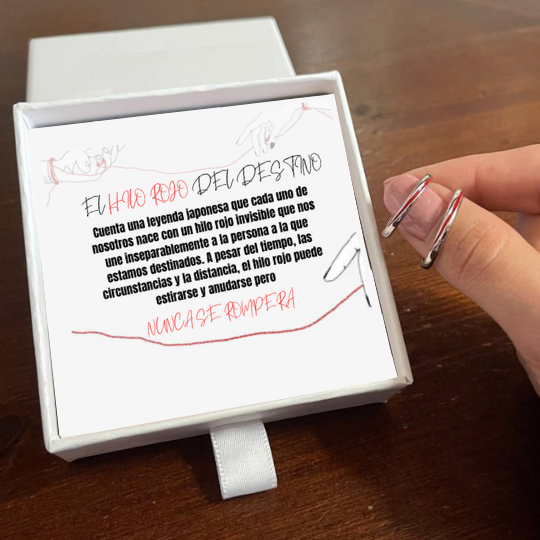 EL HILO ROJO DEL DESTINO
Cuenta una leyenda japonesa que cada uno de
nosotros nace con un hilo rojo invisible que nos
une inseparablemente a la persona a la que
estamos destinados. A pesar del tiempo, las
circunstancias y la distancia, el hilo rojo puede
estirarse y anudarse pero
NUNCA SE ROMPERA